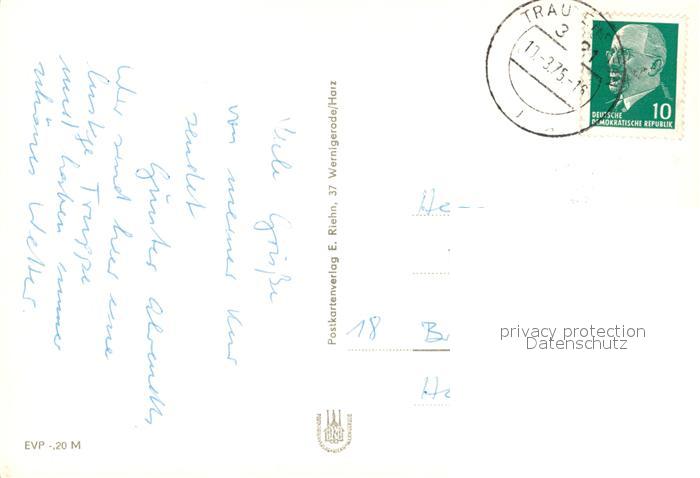 Viele Grüße
von meiner Kur
sendet
Günter
Wir sind hier eine
lustige Truppe
und haben immer
schönes Wetter.
EVP -,20 M
Postkartenverlag E. Riehn, 37 Wernigerode/Harz
He
18 B
Ha
privacy protection
Datenschutz
TRAU
3
-3.75.-16
10
DEUTSCHE
DEMOKRATISCHE REPUBLIK